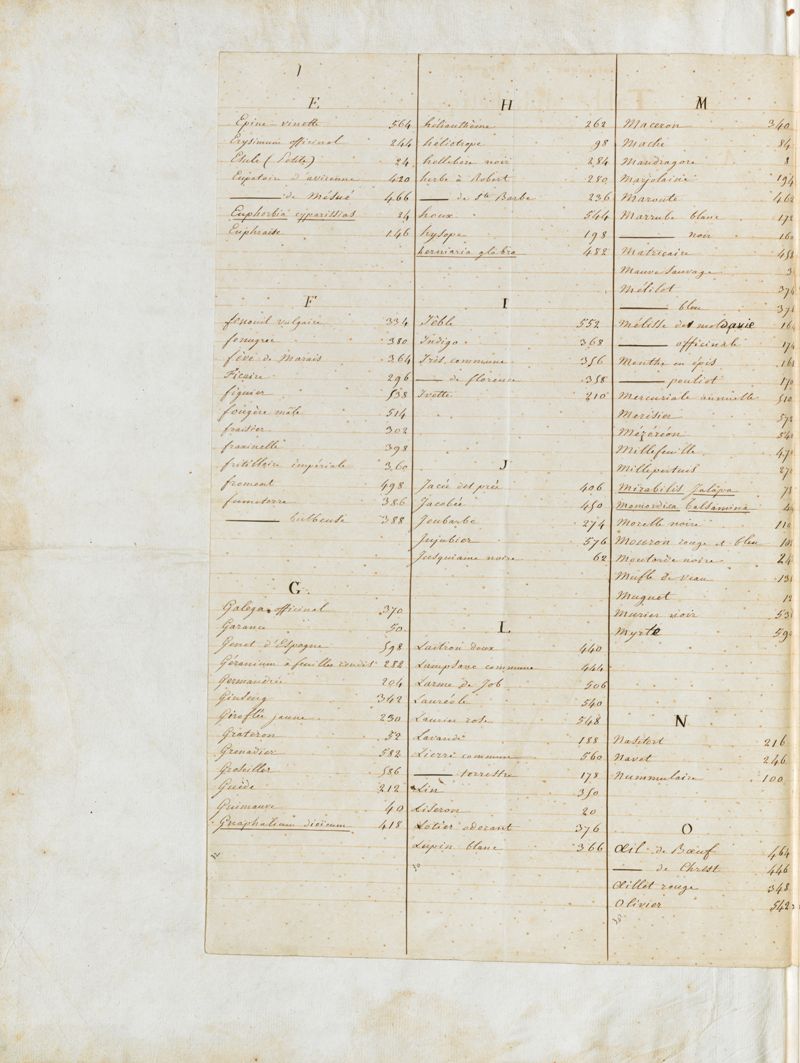 E
Epine-vinette 564
Erysimum officinal 244
Esule (Petite) 24
Eupatoire d'avicenne 420
—— de Mésué 466
Euphorbia cyparissias 24
Euphraise 146
F
fenouil vulgaire 334
fenugrec 380
fève de Marais 364
Ficaire 296
figuier 538
fougère mâle 514
fraisier 302
fraxinelle 398
fritillaire impériale 360
froment 498
fumeterre 386
—— bulbeuse 388
G
Galega officinal 370
Garance 50
Genet d'Espagne 598
Géranium à feuilles rondes 282
Germandrée 204
Ginseng 342
Giroflée jaune 230
Grateron 52
Grenadier 582
Groseiller 586
Guède 212
Guimauve 40
Gnaphalium dioicum 418
H
hélianthème 262
héliotrope 98
hellebore noir 284
herbe à Robert 280
—— de Ste Barbe 236
houx 544
hysope 198
herniaria glabra 482
I
Ièble 552
Indigo 368
Iris commune 356
—— de florence 358
Ivette 210
J
Jacée des prés 406
Jacobée 450
Joubarbe 274
Jujubier 576
Jusquiame noire 62
L
Laitron doux 440
Lampsane commune 444
Larme de Job 506
Lauréole 540
Laurier rose 548
Lavande 188
Lierre commun 560
—— terrestre 178
Lin 350
Liseron 20
Lotier odorant 376
Lupin blanc 366
M
Maceron 340
Mache 84
Mandragore 8
Marjolaine 194
Maroute 462
Marrube blanc 172
—— noir
Matricaire
Mauve sauvage
Mélilot
—— bleu
Mélisse de moldavie
—— officinale
Menthe en épis
—— pouliot
Mercuriale annuelle
Merisier
Mézéréon
Millefeuille
Millepertuis
Mirabilis Jalapa
Momordica balsamina
Morelle noire
Mouron rouge et bleu
Moutarde noire
Mufle de veau
Muguet
Murier noir
Myrte
N
Nasitort 216
Navet 246
Nummulaire 100
O
Œil de Bœuf 464
—— de Christ 446
Œillet rouge 348
Olivier 542